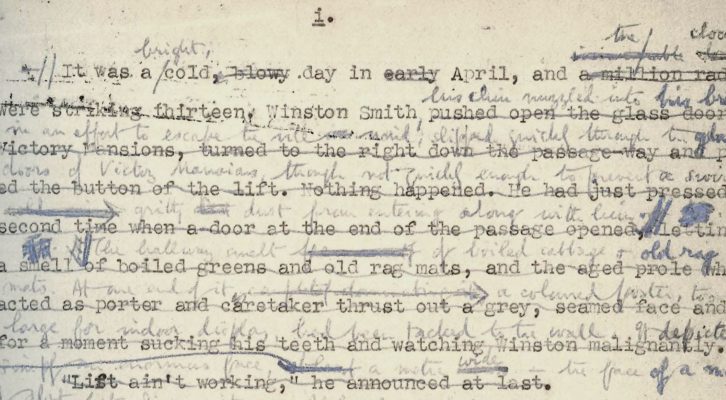 i.
bright,
the/ clock
It was a/cold, blowy day in early April, and a million ra
his chin nuzzled into his bre
were striking thirteen. Winston Smith pushed open the glass door
in an effort to escape the wind, slipped quickly through the
Victory Mansions, turned to the right down the passage-way and p
doors of Victory Mansions, though not quickly enough to prevent a
ed the button of the lift. Nothing happened. He had just pressed
gritty dust from entering along with him.
second time when a door at the end of the passage opened, lettin
The hallway smelt of boiled cabbage & old rag
a smell of boiled greens and old rag mats, and the aged prole wh
mats. At one end of it a coloured poster, too
acted as porter and caretaker thrust out a grey, seamed face and
large for indoor display had been tacked to the wall. It depicte
for a moment sucking his teeth and watching Winston malignantly.
enormous face, a metre wide - the face of a m
"Lift ain't working," he announced at last.